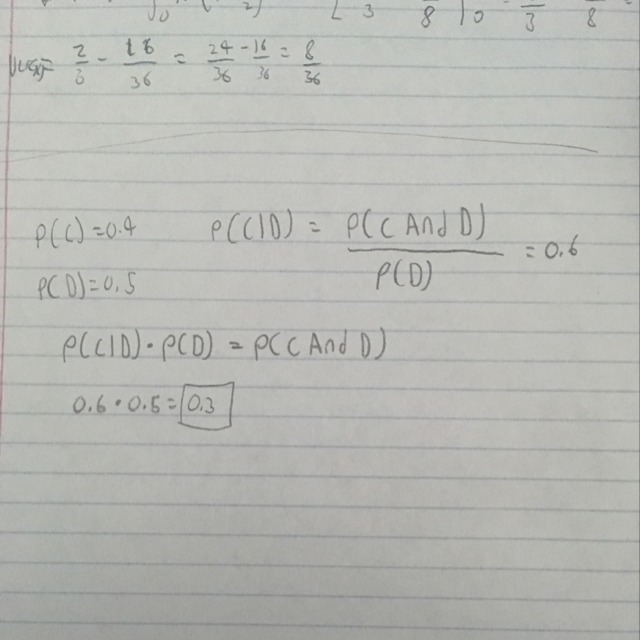 3 8 0 3 8
2/3 - 16/36 = 24/36 - 16/36 = 8/36
P(C)=0.4 P(C|D) = P(C And D) / P(D) = 0.6
P(D)=0.5
P(C|D)·P(D) = P(C And D)
0.6·0.5=0.3